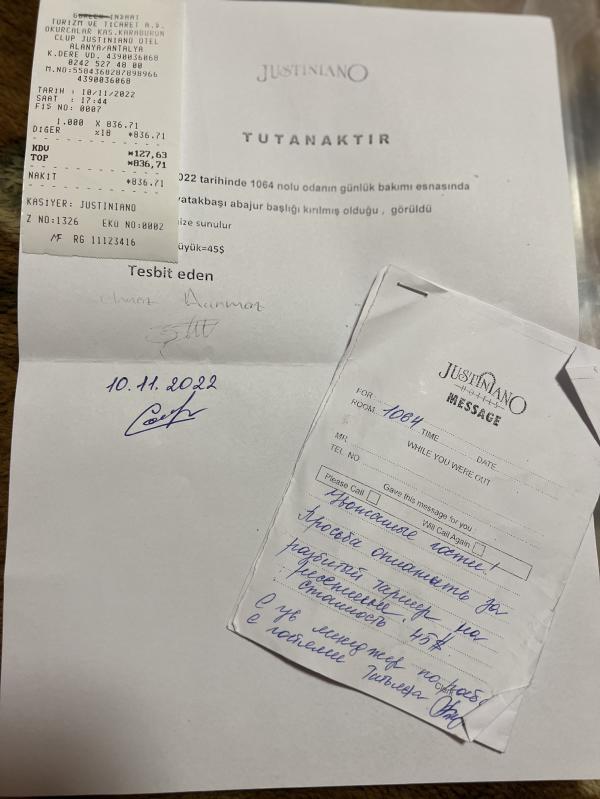 GÜRLER İNŞAAT
TURİZM VE TİCARET A.Ş.
OKURCALAR KAS.KARABURUN
CLUP JUSTINIANO OTEL
ALANYA/ANTALYA
K.DERE VD. 4390036068
0242 527 48 00
M.NO:5584368287898966
4390036068
TARİH : 10/11/2022
SAAT : 17:44
FİŞ NO: 0007
1.000 X 836.71
DİĞER %18 *836.71
KDV *127,63
TOP *836,71
NAKİT *836.71
KASİYER: JUSTINIANO
Z NO:1326 EKÜ NO:0002
MF RG 11123416
JUSTINIANO
TUTANAKTIR
022 tarihinde 1064 nolu odanın günlük bakımı esnasında
yatakbaşı abajur başlığı kırılmış olduğu , görüldü
ize sunulur
üyük=45$
Tesbit eden
10.11.2022
JUSTINIANO
HOTELS
MESSAGE
FOR
ROOM 1064 TIME DATE
WHILE YOU WERE OUT
MR.
TEL. NO
Gave this message for you
Please Call Will Call Again
Уважаемые гости!
Просьба оплатить за
разбитый на
ресепшене.
стоимость 45$.
С ув. менеджер по работе
с гостями Татьяна